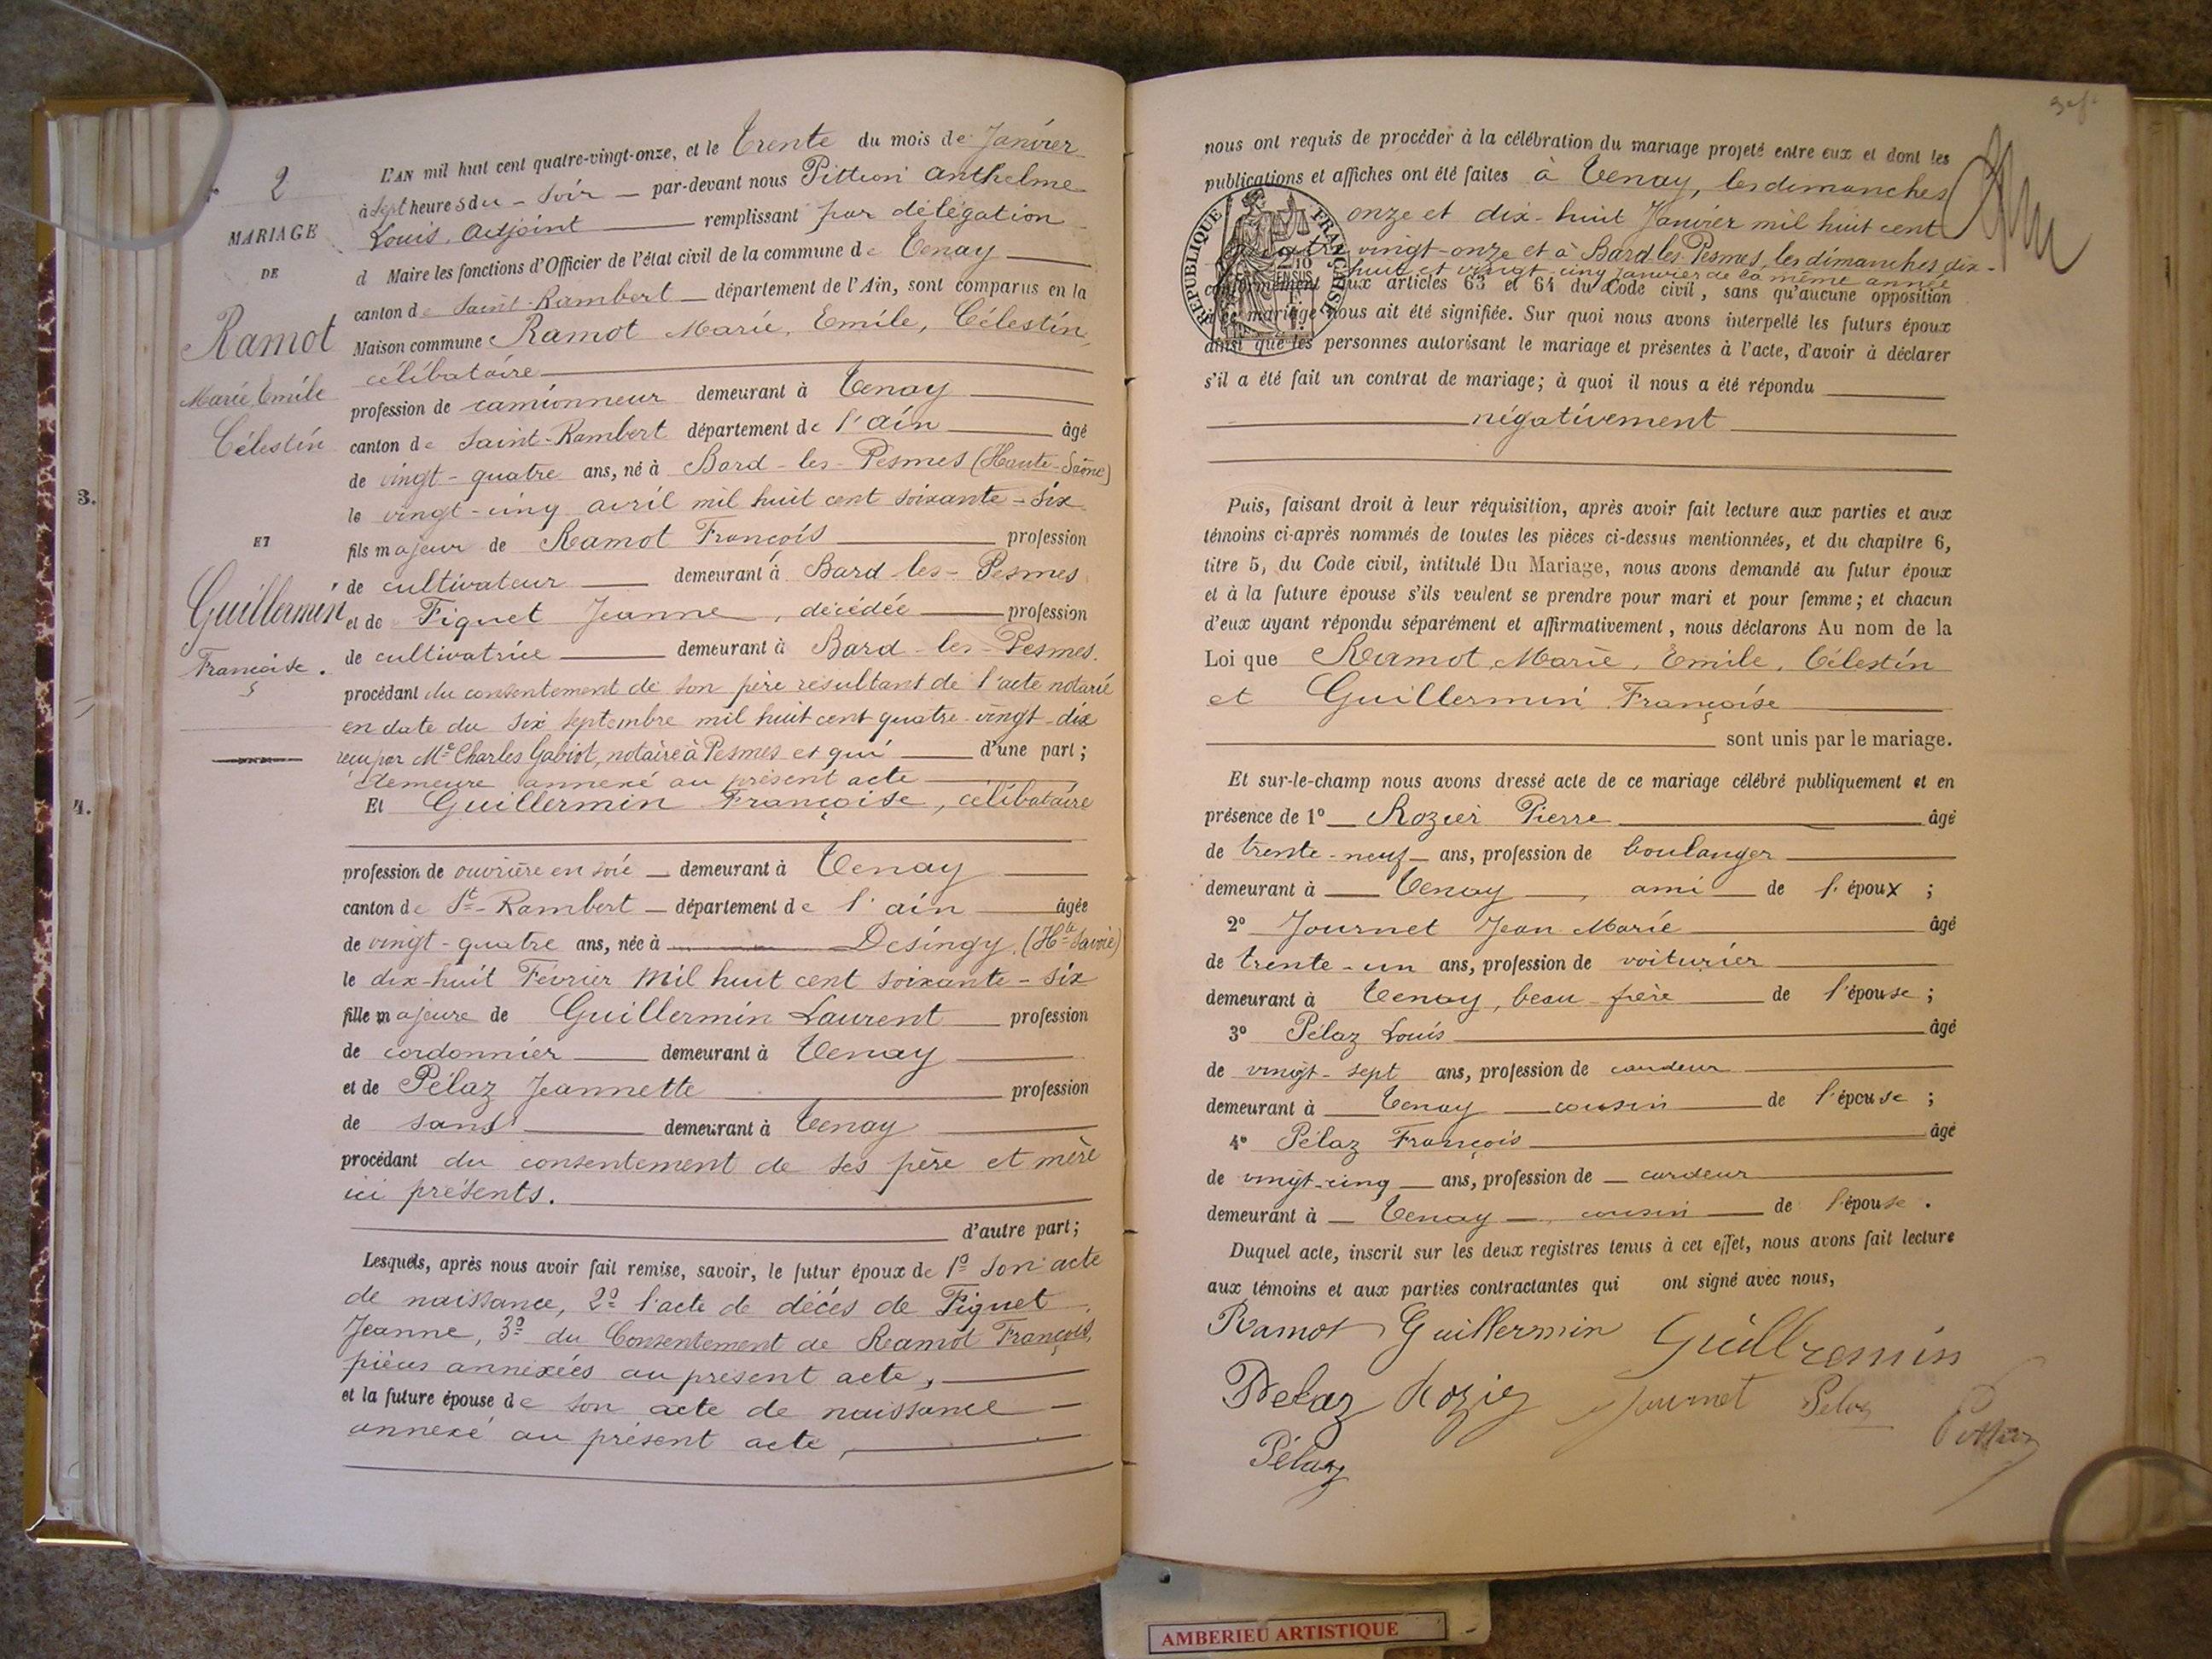 2
MARIAGE
DE
Ramot
Marie Emile
Célestin
ET
Guillermin
Françoise.
3.
4.
L'AN mil huit cent quatre-vingt-onze, et le trente du mois de Janvier
à sept heures du - soir - par-devant nous Pittion Anthelme
Louis, adjoint remplissant par délégation
d Maire les fonctions d'Officier de l'état civil de la commune de Tenay
canton de Saint-Rambert département de l'Ain, sont comparus en la
Maison commune Ramot Marie, Emile, Célestin,
célibataire
profession de camionneur demeurant à Tenay
canton de Saint-Rambert département de l'ain âgé
de vingt-quatre ans, né à Bard-les-Pesmes (Haute-Saône)
le vingt-cinq avril mil huit cent soixante-six
fils majeur de Ramot François profession
de cultivateur demeurant à Bard-les-Pesmes
et de Fiquet Jeanne, décédée profession
de cultivatrice demeurant à Bard-les-Pesmes.
procédant du consentement de son père résultant de l'acte notarié
en date du six septembre mil huit cent quatre-vingt-dix
reçu par Me Charles Gabiot, notaire à Pesmes et qui d'une part;
demeure annexé au présent acte
Et Guillermin Françoise, célibataire
profession de ouvrière en soie demeurant à Tenay
canton de St-Rambert département de l'ain âgée
de vingt-quatre ans, née à Desingy. (Hte Savoie)
le dix-huit Février mil huit cent soixante-six
fille majeure de Guillermin Laurent profession
de cordonnier demeurant à Tenay
et de Pélaz Jeannette profession
de sans demeurant à Tenay
procédant du consentement de ses père et mère
ici présents.
d'autre part;
Lesquels, après nous avoir fait remise, savoir, le futur époux de 1º son acte
de naissance, 2º l'acte de décés de Fiquet
Jeanne, 3º du Consentement de Ramot François,
pièces annexées au présent acte,
et la future épouse de son acte de naissance
annexé au présent acte,
nous ont requis de procéder à la célébration du mariage projeté entre eux et dont les
publications et affiches ont été faites à Tenay, les dimanches
onze et dix-huit Janvier mil huit cent
quatre vingt-onze et à Bard les Pesmes, les dimanches dix-
huit et vingt-cinq janvier de la même année
conformément aux articles 63 et 64 du Code civil, sans qu'aucune opposition
à ce mariage nous ait été signifiée. Sur quoi nous avons interpellé les futurs époux
ainsi que les personnes autorisant le mariage et présentes à l'acte, d'avoir à déclarer
s'il a été fait un contrat de mariage; à quoi il nous a été répondu
négativement
RÉPUBLIQUE FRANÇAISE
Puis, faisant droit à leur réquisition, après avoir fait lecture aux parties et aux
témoins ci-après nommés de toutes les pièces ci-dessus mentionnées, et du chapitre 6,
titre 5, du Code civil, intitulé Du Mariage, nous avons demandé au futur époux
et à la future épouse s'ils veulent se prendre pour mari et pour femme; et chacun
d'eux ayant répondu séparément et affirmativement, nous déclarons Au nom de la
Loi que Ramot, Marie, Emile, Célestin
et Guillermin Françoise
sont unis par le mariage.
Et sur-le-champ nous avons dressé acte de ce mariage célébré publiquement et en
présence de 1º Rozier Pierre âgé
de trente-neuf ans, profession de boulanger
demeurant à Tenay, ami de l'époux;
2º Journet Jean Marie âgé
de trente-un ans, profession de voiturier
demeurant à Tenay, beau-frère de l'épouse;
3º Pélaz Louis âgé
de vingt-sept ans, profession de cardeur
demeurant à Tenay cousin de l'épouse;
4º Pélaz François âgé
de vingt-cinq ans, profession de cardeur
demeurant à Tenay, cousin de l'épouse.
Duquel acte, inscrit sur les deux registres tenus à cet effet, nous avons fait lecture
aux témoins et aux parties contractantes qui ont signé avec nous,
Ramot Guillermin Guillremin
Pelaz Rozier Journet Pelaz Pittion
Pélaz
AMBERIEU ARTISTIQUE